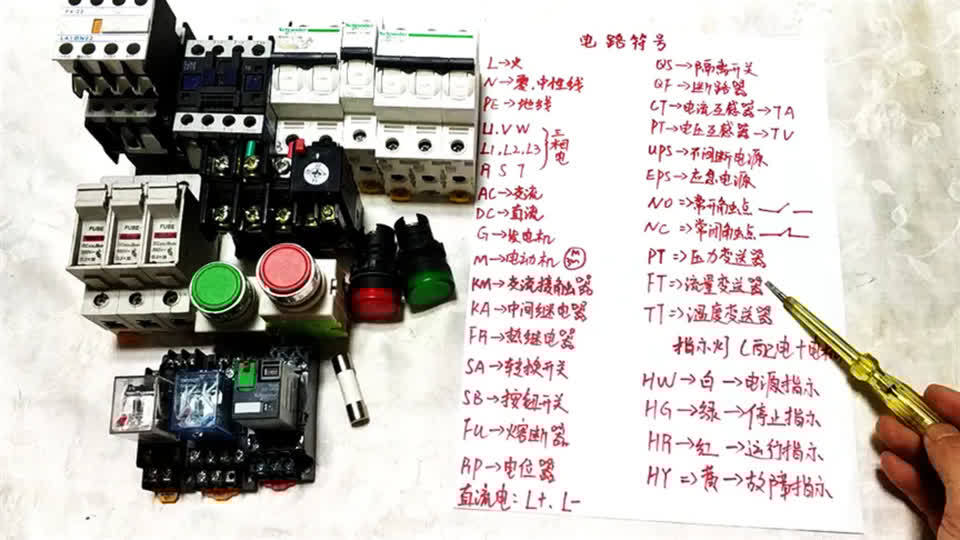 电路符号
L→火
N→零,中性线
PE→地线
U.V W
L1,L2,L3
R S T
三相电
AC→交流
DC→直流
G→发电机
M→电动机
KM→交流接触器
KA→中间继电器
FR→热继电器
SA→转换开关
SB→按钮开关
FU→熔断器
RP→电位器
直流电:L+、L-
QS→隔离开关
QF→断路器
CT→电流互感器→TA
PT→电压互感器→TV
UPS→不间断电源
EPS→应急电源
NO⇒常开触点
NC⇒常闭触点
PT⇒压力变送器
FT⇒流量变送器
TT⇒温度变送器
指示灯(配电+电
HW→白→电源指示
HG→绿→停止指示
HR→红→运行指示
HY⇒黄→故障指示
LA1DN22
Schneider
Schneider
Schneider
FUSE
FUSE
FUSE